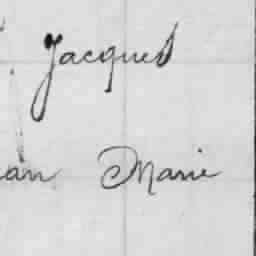 Jacques
ean Marie